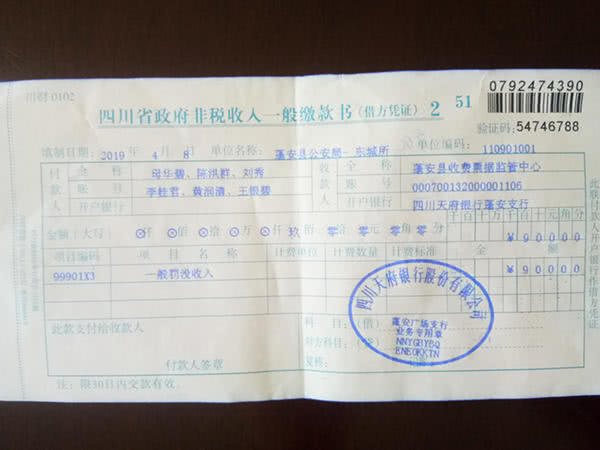 川财 0102
四川省政府非税收入一般缴款书(借方凭证) 2 51
0792474390
验证码: 54746788
填制日期: 2019 年 4 月 8 日 单位名称: 蓬安县公安局-东城所 单位编码: 110901001
付 全称 母华碧、陈洪群、刘秀 收 全称 蓬安县收费票据监管中心
款 账号 李桂君、黄润清、王银碧 款 账号 000700132000001106
人 开户银行 人 开户银行 四川天府银行蓬安支行
千百十万千百十元角分
金额: 大写 仟 佰 拾 万 仟 玖佰 零拾 零元 零角 零分 ¥90000
项目编码 项目名称 计费单位 计费数量 计费标准 金额
99901X3 一般罚没收入 ¥90000
此款支付给收款人
付款人签章
科目:(借)
对方科目:(贷)
复核:
四川天府银行股份有限公司
蓬安广场支行
业务专用章
NNYGBYBQ
EN5OKKTN
注: 限30日内交款有效。
此联付款人开户银行作借方凭证